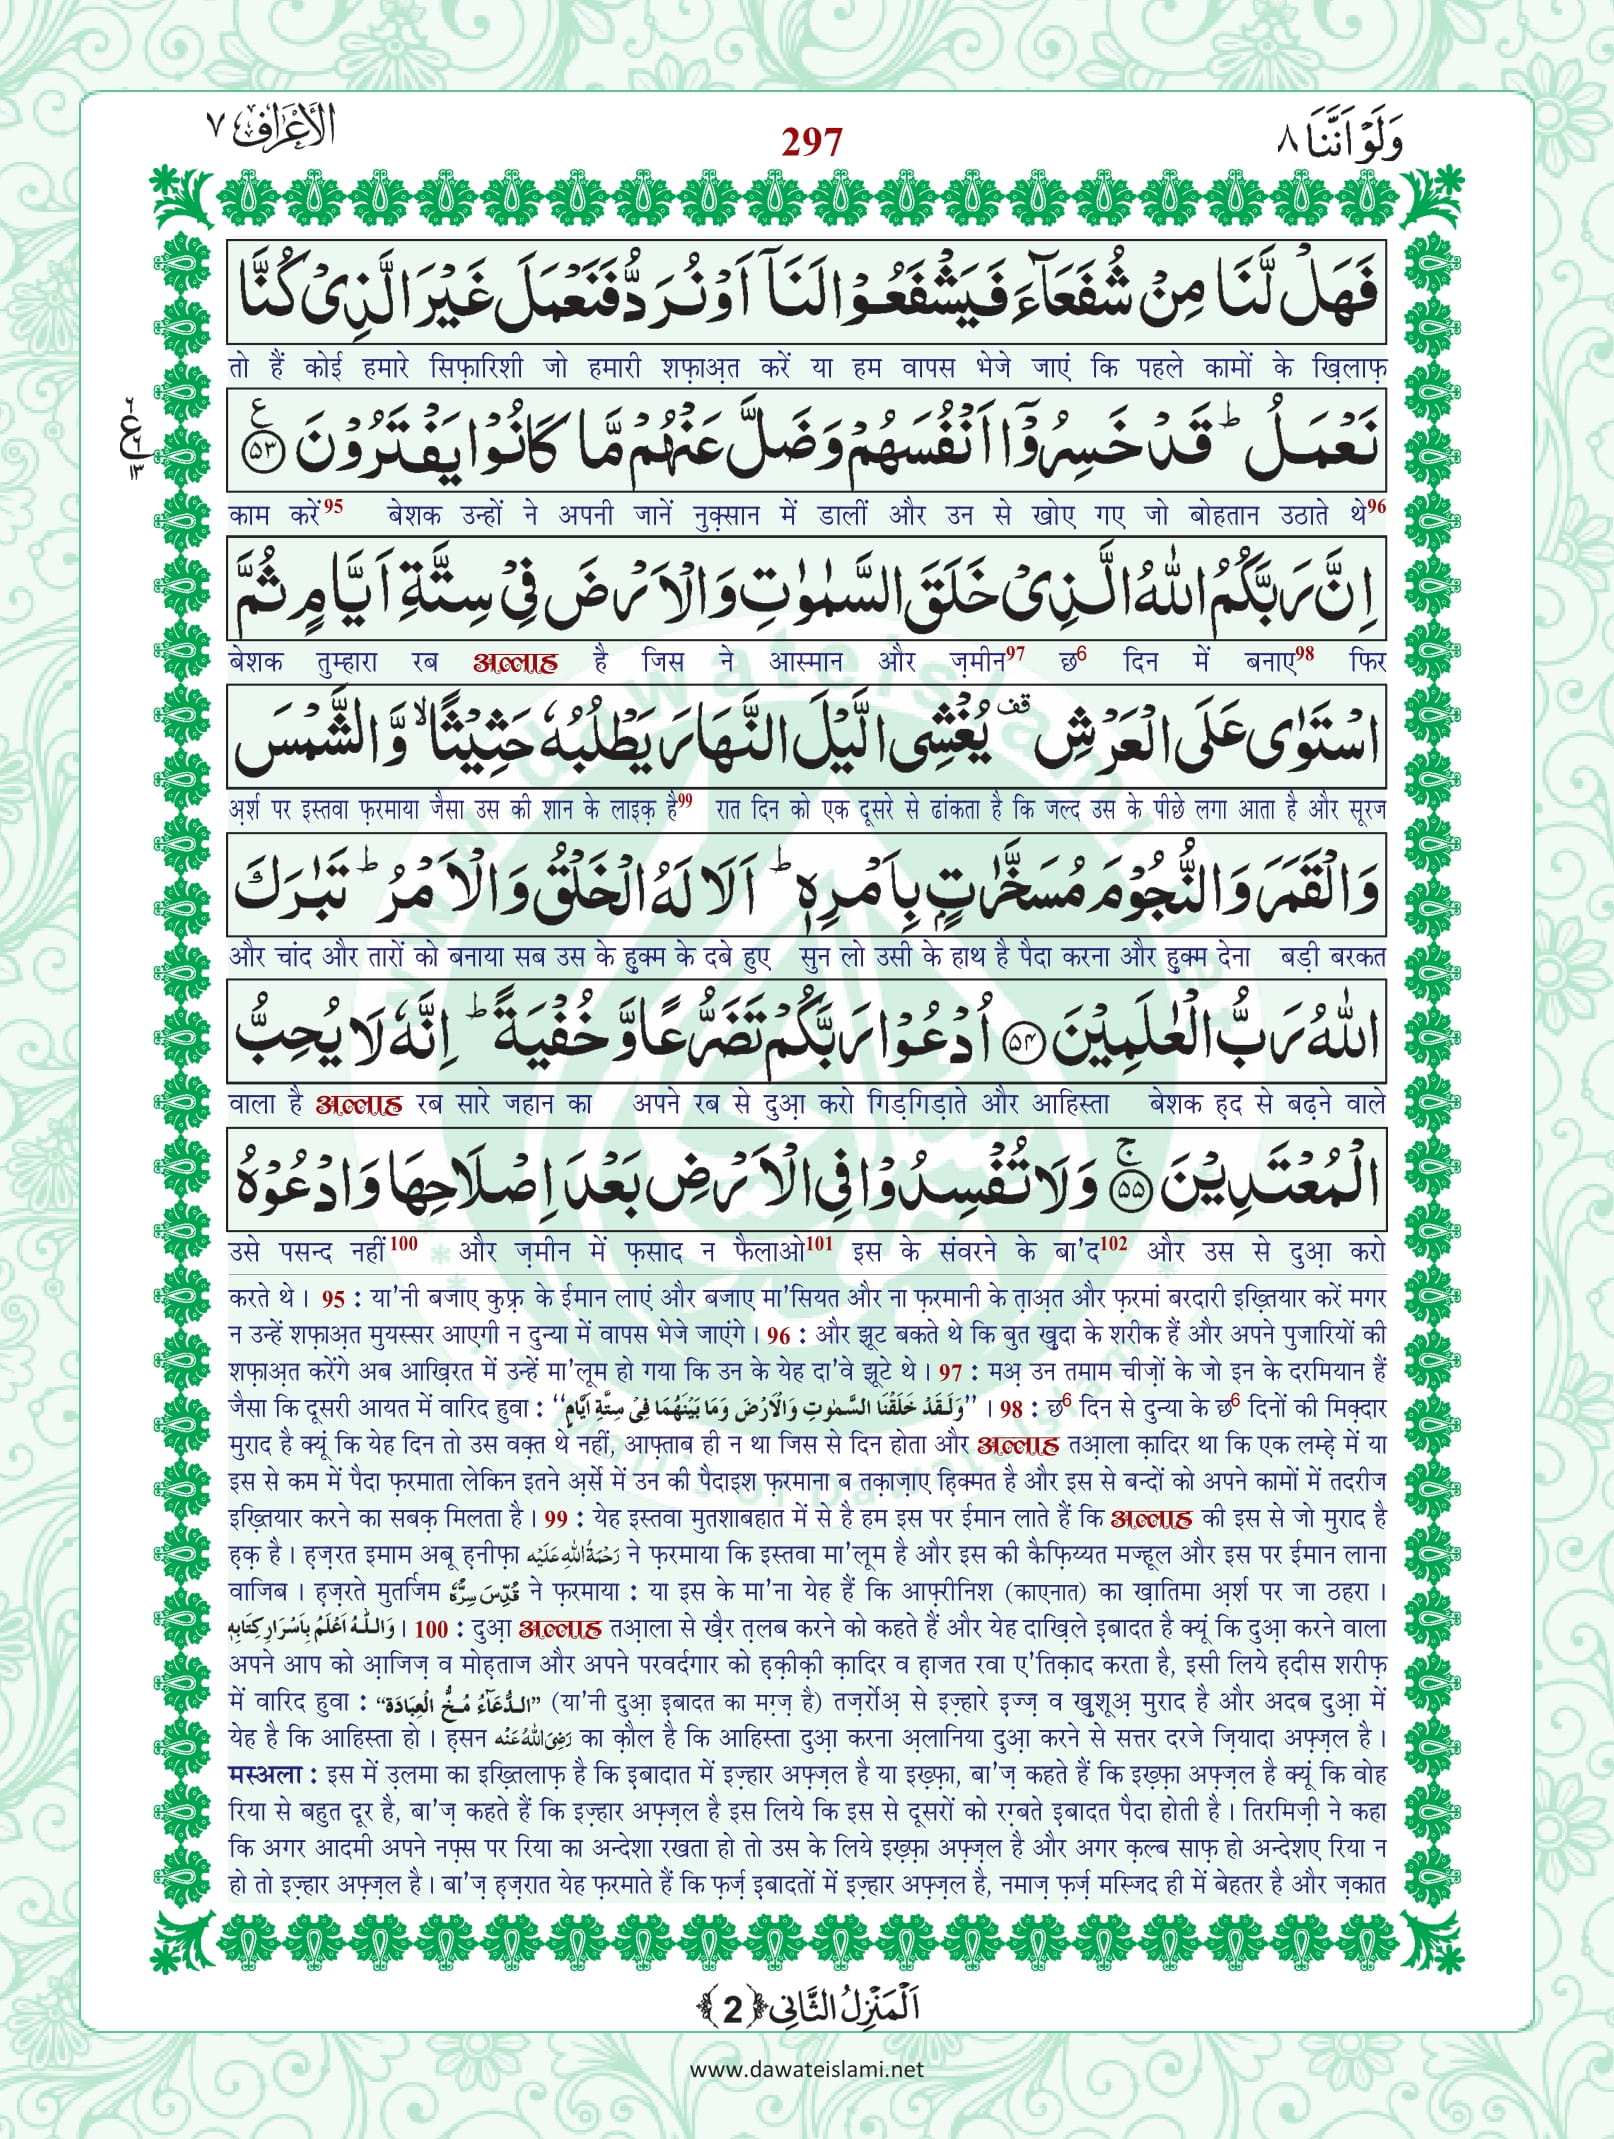 وَلَوْ اَنَّنَا ٨
297
الْاَعْرَاف ٧
فَهَلْ لَّنَا مِنْ شُفَعَآءَ فَیَشْفَعُوْا لَنَاۤ اَوْ نُرَدُّ فَنَعْمَلَ غَیْرَ الَّذِیْ كُنَّا
तो हैं कोई हमारे सिफ़ारिशी जो हमारी शफ़ाअ़त करें या हम वापस भेजे जाएं कि पहले कामों के ख़िलाफ़
نَعْمَلُؕ قَدْ خَسِرُوْۤا اَنْفُسَهُمْ وَضَلَّ عَنْهُمْ مَّا كَانُوْا یَفْتَرُوْنَ ﴿۵۳﴾ ع
काम करें95 बेशक उन्हों ने अपनी जानें नुक़्सान में डालीं और उन से खोए गए जो बोहतान उठाते थे96
اِنَّ رَبَّكُمُ اللّٰهُ الَّذِیْ خَلَقَ السَّمٰوٰتِ وَالْاَرْضَ فِیْ سِتَّةِ اَیَّامٍ ثُمَّ
बेशक तुम्हारा रब अल्लाह है जिस ने आस्मान और ज़मीन97 छ6 दिन में बनाए98 फिर
اسْتَوٰی عَلَی الْعَرْشِ قف یُغْشِی الَّیْلَ النَّهَارَ یَطْلُبُهٗ حَثِیْثًاۙ وَّالشَّمْسَ
अ़र्श पर इस्तवा फ़रमाया जैसा उस की शान के लाइक़ है99 रात दिन को एक दूसरे से ढांकता है कि जल्द उस के पीछे लगा आता है और सूरज
وَالْقَمَرَ وَالنُّجُوْمَ مُسَخَّرٰتٍۭ بِاَمْرِهٖؕ اَلَا لَهُ الْخَلْقُ وَالْاَمْرُؕ تَبٰرَكَ
और चांद और तारों को बनाया सब उस के हुक्म के दबे हुए सुन लो उसी के हाथ है पैदा करना और हुक्म देना बड़ी बरकत
اللّٰهُ رَبُّ الْعٰلَمِیْنَ ﴿۵۴﴾ اُدْعُوْا رَبَّكُمْ تَضَرُّعًا وَّخُفْیَةًؕ اِنَّهٗ لَا یُحِبُّ
वाला है अल्लाह रब सारे जहान का अपने रब से दुआ़ करो गिड़गिड़ाते और आहिस्ता बेशक हद से बढ़ने वाले
الْمُعْتَدِیْنَ ﴿۵۵﴾ۚ وَلَا تُفْسِدُوْا فِی الْاَرْضِ بَعْدَ اِصْلَاحِهَا وَادْعُوْهُ
उसे पसन्द नहीं100 और ज़मीन में फ़साद न फैलाओ101 इस के संवरने के बा'द102 और उस से दुआ़ करो
करते थे । 95 : या'नी बजाए कुफ़्र के ईमान लाएं और बजाए मा'सियत और ना फ़रमानी के ता़अ़त और फ़रमां बरदारी इख़्तियार करें मगर
न उन्हें शफ़ाअ़त मुयस्सर आएगी न दुन्या में वापस भेजे जाएंगे । 96 : और झूट बकते थे कि बुत खु़दा के शरीक हैं और अपने पुजारियों की
शफ़ाअ़त करेंगे अब आख़िरत में उन्हें मा'लूम हो गया कि उन के येह दा'वे झूटे थे । 97 : मअ़ उन तमाम चीज़ों के जो इन के दरमियान हैं
जैसा कि दूसरी आयत में वारिद हुवा : ‘‘وَلَقَدْ خَلَقْنَا السَّمٰوٰتِ وَالْاَرْضَ وَمَا بَیْنَهُمَا فِیْ سِتَّةِ اَیَّامٍ’’ । 98 : छ6 दिन से दुन्या के छ6 दिनों की मिक़्दार
मुराद है क्यूं कि येह दिन तो उस वक़्त थे नहीं, आफ़्ताब ही न था जिस से दिन होता और अल्लाह तआ़ला क़ादिर था कि एक लम्हे में या
इस से कम में पैदा फ़रमाता लेकिन इतने अ़र्से में उन की पैदाइश फ़रमाना ब तक़ाज़ाए हि़क्मत है और इस से बन्दों को अपने कामों में तदरीज
इख़्तियार करने का सबक़ मिलता है । 99 : येह इस्तवा मुतशाबहात में से है हम इस पर ईमान लाते हैं कि अल्लाह की इस से जो मुराद है
ह़क़ है । हज़रत इमाम अबू ह़नीफ़ा رَحْمَةُ اللّٰهِ عَلَیْه ने फ़रमाया कि इस्तवा मा'लूम है और इस की कैफ़िय्यत मज्हूल और इस पर ईमान लाना
वाजिब । हज़रते मुतर्जिम قُدِّسَ سِرُّهٗ ने फ़रमाया : या इस के मा'ना येह हैं कि आफ़्रीनिश (काएनात) का ख़ातिमा अ़र्श पर जा ठहरा ।
وَاللّٰهُ اَعْلَمُ بِاَسْرَارِ كِتَابِهٖ । 100 : दुआ़ अल्लाह तआ़ला से ख़ैर त़लब करने को कहते हैं और येह दाखि़ले इ़बादत है क्यूं कि दुआ़ करने वाला
अपने आप को आ़जिज़ व मोह़ताज और अपने परवर्दगार को ह़क़ीक़ी क़ादिर व ह़ाजत रवा ए'तिक़ाद करता है, इसी लिये ह़दीस शरीफ़
में वारिद हुवा : “اَلدُّعَآءُ مُخُّ الْعِبَادَة” (या'नी दुआ़ इ़बादत का मग्ज़ है) तज़र्रोअ़ से इज़्हारे इज्ज़ व खु़शूअ़ मुराद है और अदब दुआ़ में
येह है कि आहिस्ता हो । ह़सन رَضِیَ اللّٰهُ عَنْه का क़ौल है कि आहिस्ता दुआ़ करना अ़लानिया दुआ़ करने से सत्तर दरजे ज़ियादा अफ़्ज़ल है ।
मस्अला : इस में उ़लमा का इख़्तिलाफ़ है कि इ़बादात में इज़्हार अफ़्ज़ल है या इख़्फ़ा, बा'ज़ कहते हैं कि इख़्फ़ा अफ़्ज़ल है क्यूं कि वोह
रिया से बहुत दूर है, बा'ज़ कहते हैं कि इज़्हार अफ़्ज़ल है इस लिये कि इस से दूसरों को रग़्बते इ़बादत पैदा होती है । तिरमिज़ी ने कहा
कि अगर आदमी अपने नफ़्स पर रिया का अन्देशा रखता हो तो उस के लिये इख़्फ़ा अफ़्ज़ल है और अगर क़ल्ब साफ़ हो अन्देशए रिया न
हो तो इज़्हार अफ़्ज़ल है । बा'ज़ ह़ज़रात येह फ़रमाते हैं कि फ़र्ज़ इ़बादतों में इज़्हार अफ़्ज़ल है, नमाज़ फ़र्ज़ मस्जिद ही में बेहतर है और ज़कात
اَلْمَنْزِلُ الثَّانِی ﴿2﴾
www.dawateislami.net